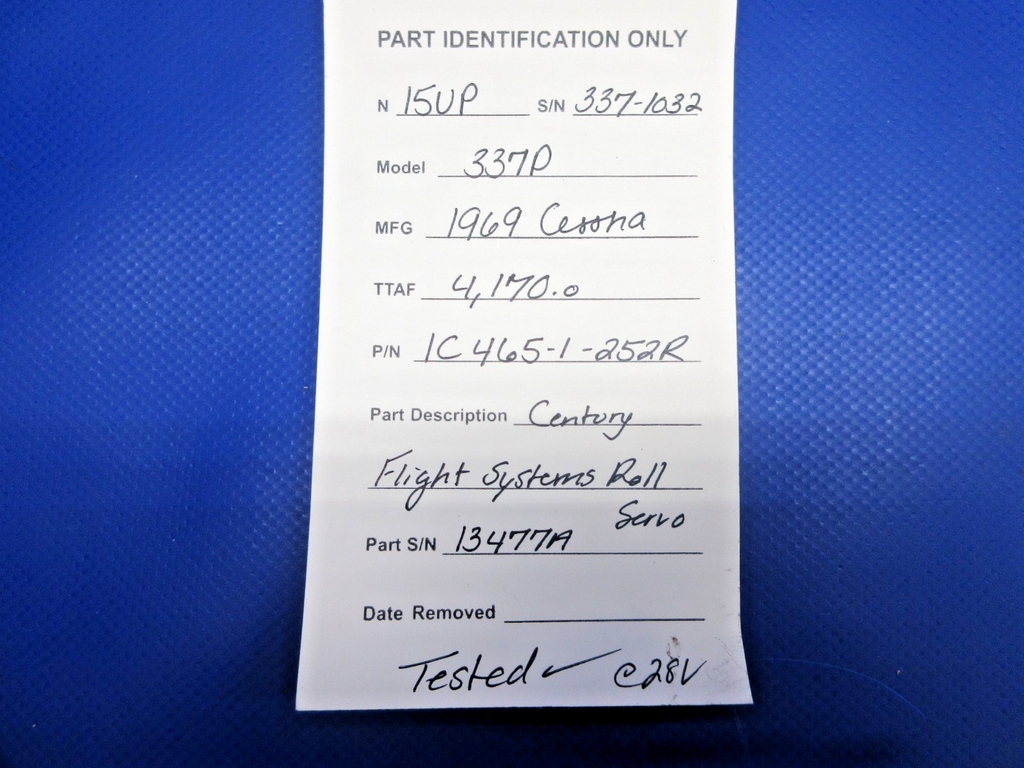 PART IDENTIFICATION ONLY
N 15UP S/N 337-1032
Model 337D
MFG 1969 Cessna
TTAF 4,170.0
P/N 1C465-1-252R
Part Description Century
Flight Systems Roll
Servo
Part S/N 13477A
Date Removed
Tested ✓ @28V